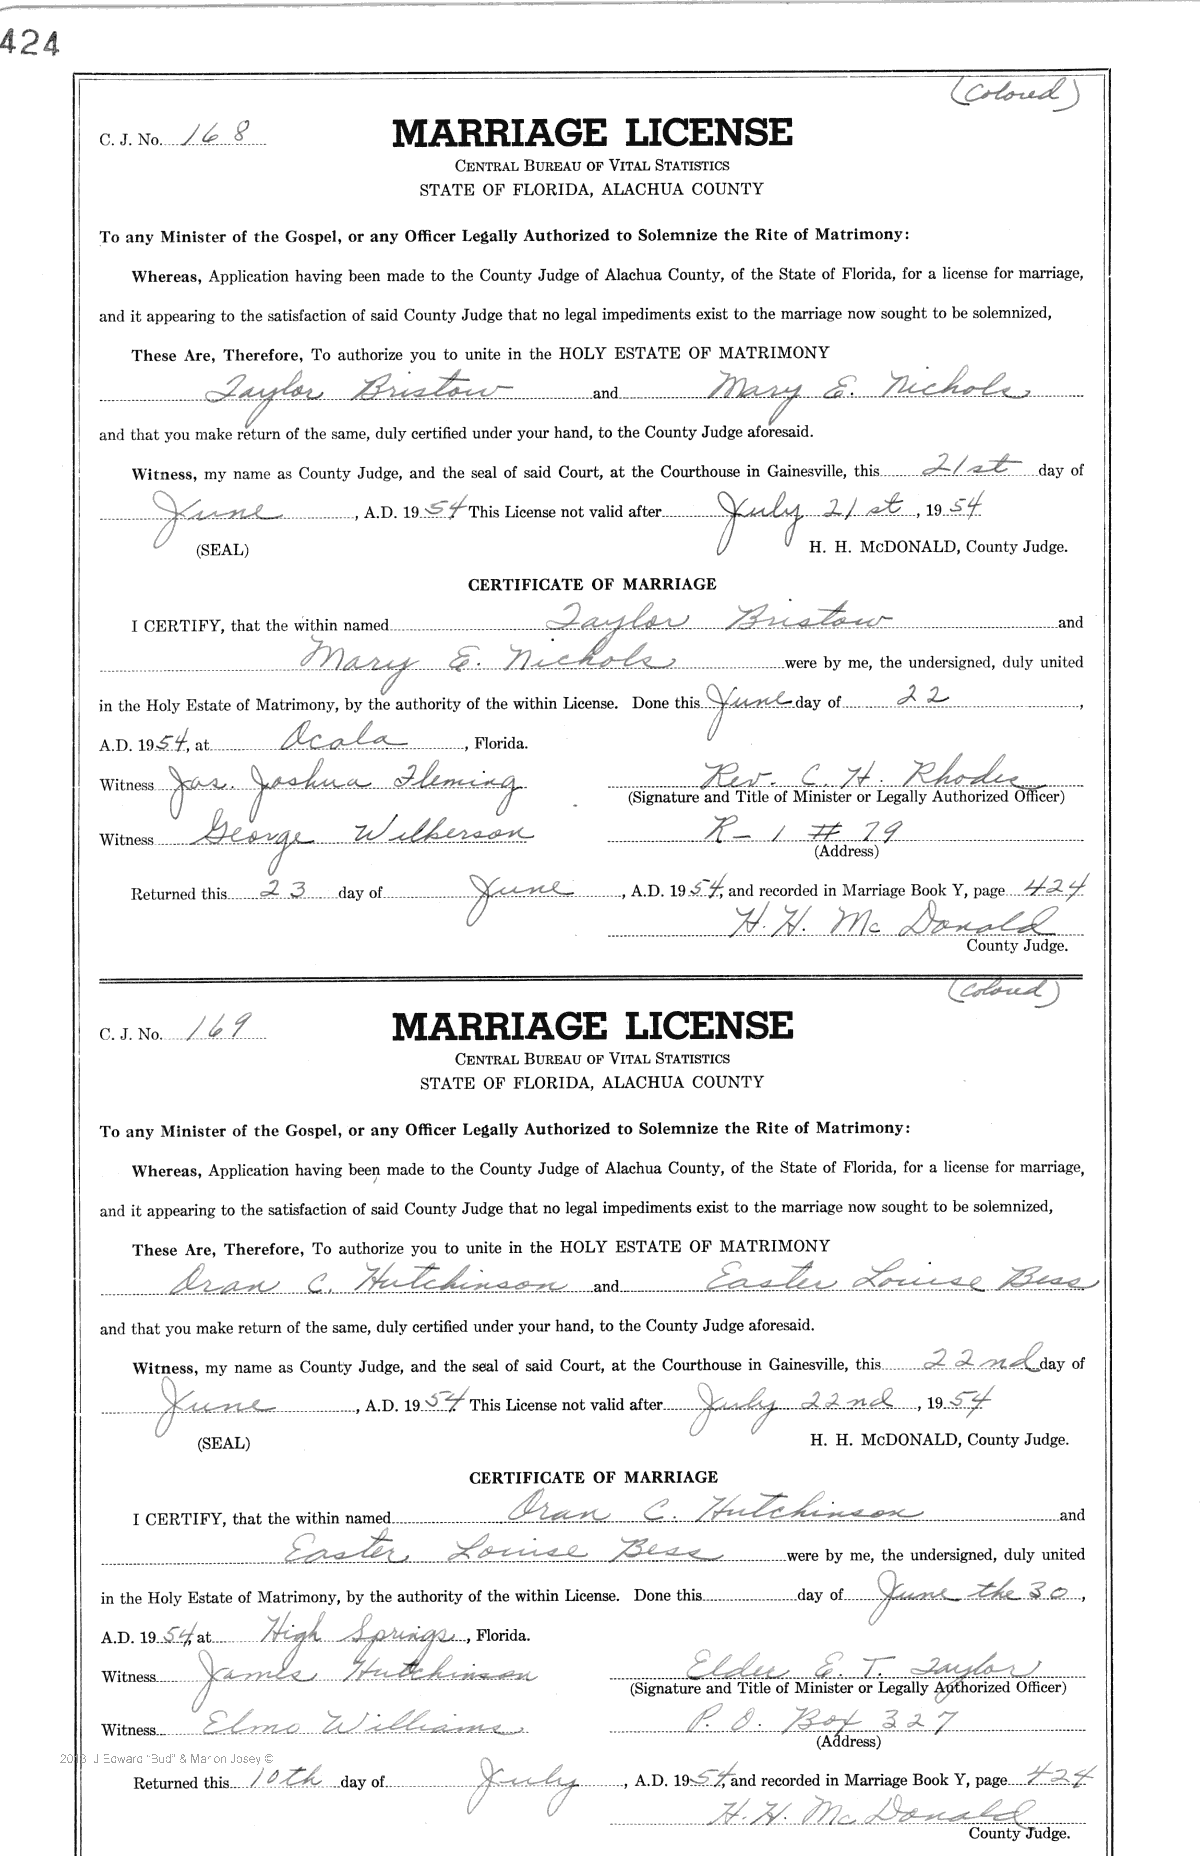 424
(Colored)
C. J. No. 168
MARRIAGE LICENSE
CENTRAL BUREAU OF VITAL STATISTICS
STATE OF FLORIDA, ALACHUA COUNTY
To any Minister of the Gospel, or any Officer Legally Authorized to Solemnize the Rite of Matrimony:
Whereas, Application having been made to the County Judge of Alachua County, of the State of Florida, for a license for marriage,
and it appearing to the satisfaction of said County Judge that no legal impediments exist to the marriage now sought to be solemnized,
These Are, Therefore, To authorize you to unite in the HOLY ESTATE OF MATRIMONY
Taylor Bristow and Mary E. Nichols
and that you make return of the same, duly certified under your hand, to the County Judge aforesaid.
Witness, my name as County Judge, and the seal of said Court, at the Courthouse in Gainesville, this 21st day of
June, A.D. 1954 This License not valid after July 21st, 1954
(SEAL) H. H. McDONALD, County Judge.
CERTIFICATE OF MARRIAGE
I CERTIFY, that the within named Taylor Bristow and
Mary E. Nichols were by me, the undersigned, duly united
in the Holy Estate of Matrimony, by the authority of the within License. Done this June day of 22,
A.D. 1954, at Ocala, Florida.
Witness Jas. Joshua Fleming Rev. C. H. Rhodes
(Signature and Title of Minister or Legally Authorized Officer)
Witness George Wilkerson R-1 # 79
(Address)
Returned this 23 day of June, A.D. 1954, and recorded in Marriage Book Y, page 424
H. H. McDonald
County Judge.
(Colored)
C. J. No. 169
MARRIAGE LICENSE
CENTRAL BUREAU OF VITAL STATISTICS
STATE OF FLORIDA, ALACHUA COUNTY
To any Minister of the Gospel, or any Officer Legally Authorized to Solemnize the Rite of Matrimony:
Whereas, Application having been made to the County Judge of Alachua County, of the State of Florida, for a license for marriage,
and it appearing to the satisfaction of said County Judge that no legal impediments exist to the marriage now sought to be solemnized,
These Are, Therefore, To authorize you to unite in the HOLY ESTATE OF MATRIMONY
Oran C. Hutchinson and Easter Louise Bess
and that you make return of the same, duly certified under your hand, to the County Judge aforesaid.
Witness, my name as County Judge, and the seal of said Court, at the Courthouse in Gainesville, this 22nd day of
June, A.D. 1954 This License not valid after July 22nd, 1954
(SEAL) H. H. McDONALD, County Judge.
CERTIFICATE OF MARRIAGE
I CERTIFY, that the within named Oran C. Hutchinson and
Easter Louise Bess were by me, the undersigned, duly united
in the Holy Estate of Matrimony, by the authority of the within License. Done this day of June the 30,
A.D. 1954, at High Springs, Florida.
Witness James Hutchinson Elder E. T. Taylor
(Signature and Title of Minister or Legally Authorized Officer)
Witness Elmo Williams P. O. Box 327
(Address)
J Edward "Bud" & Marion Josey ©
Returned this 10th day of July, A.D. 1954, and recorded in Marriage Book Y, page 424
H. H. McDonald
County Judge.